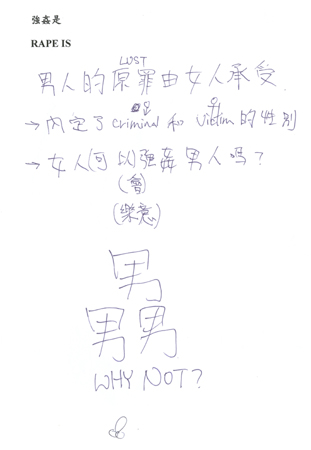 強姦是
RAPE IS
LUST
男人的原罪由女人承受.
→ 內定了 criminal 和 victim 的性別
→ 女人(可以)強姦男人嗎?
(會)
(樂意)
男
男男
WHY NOT?